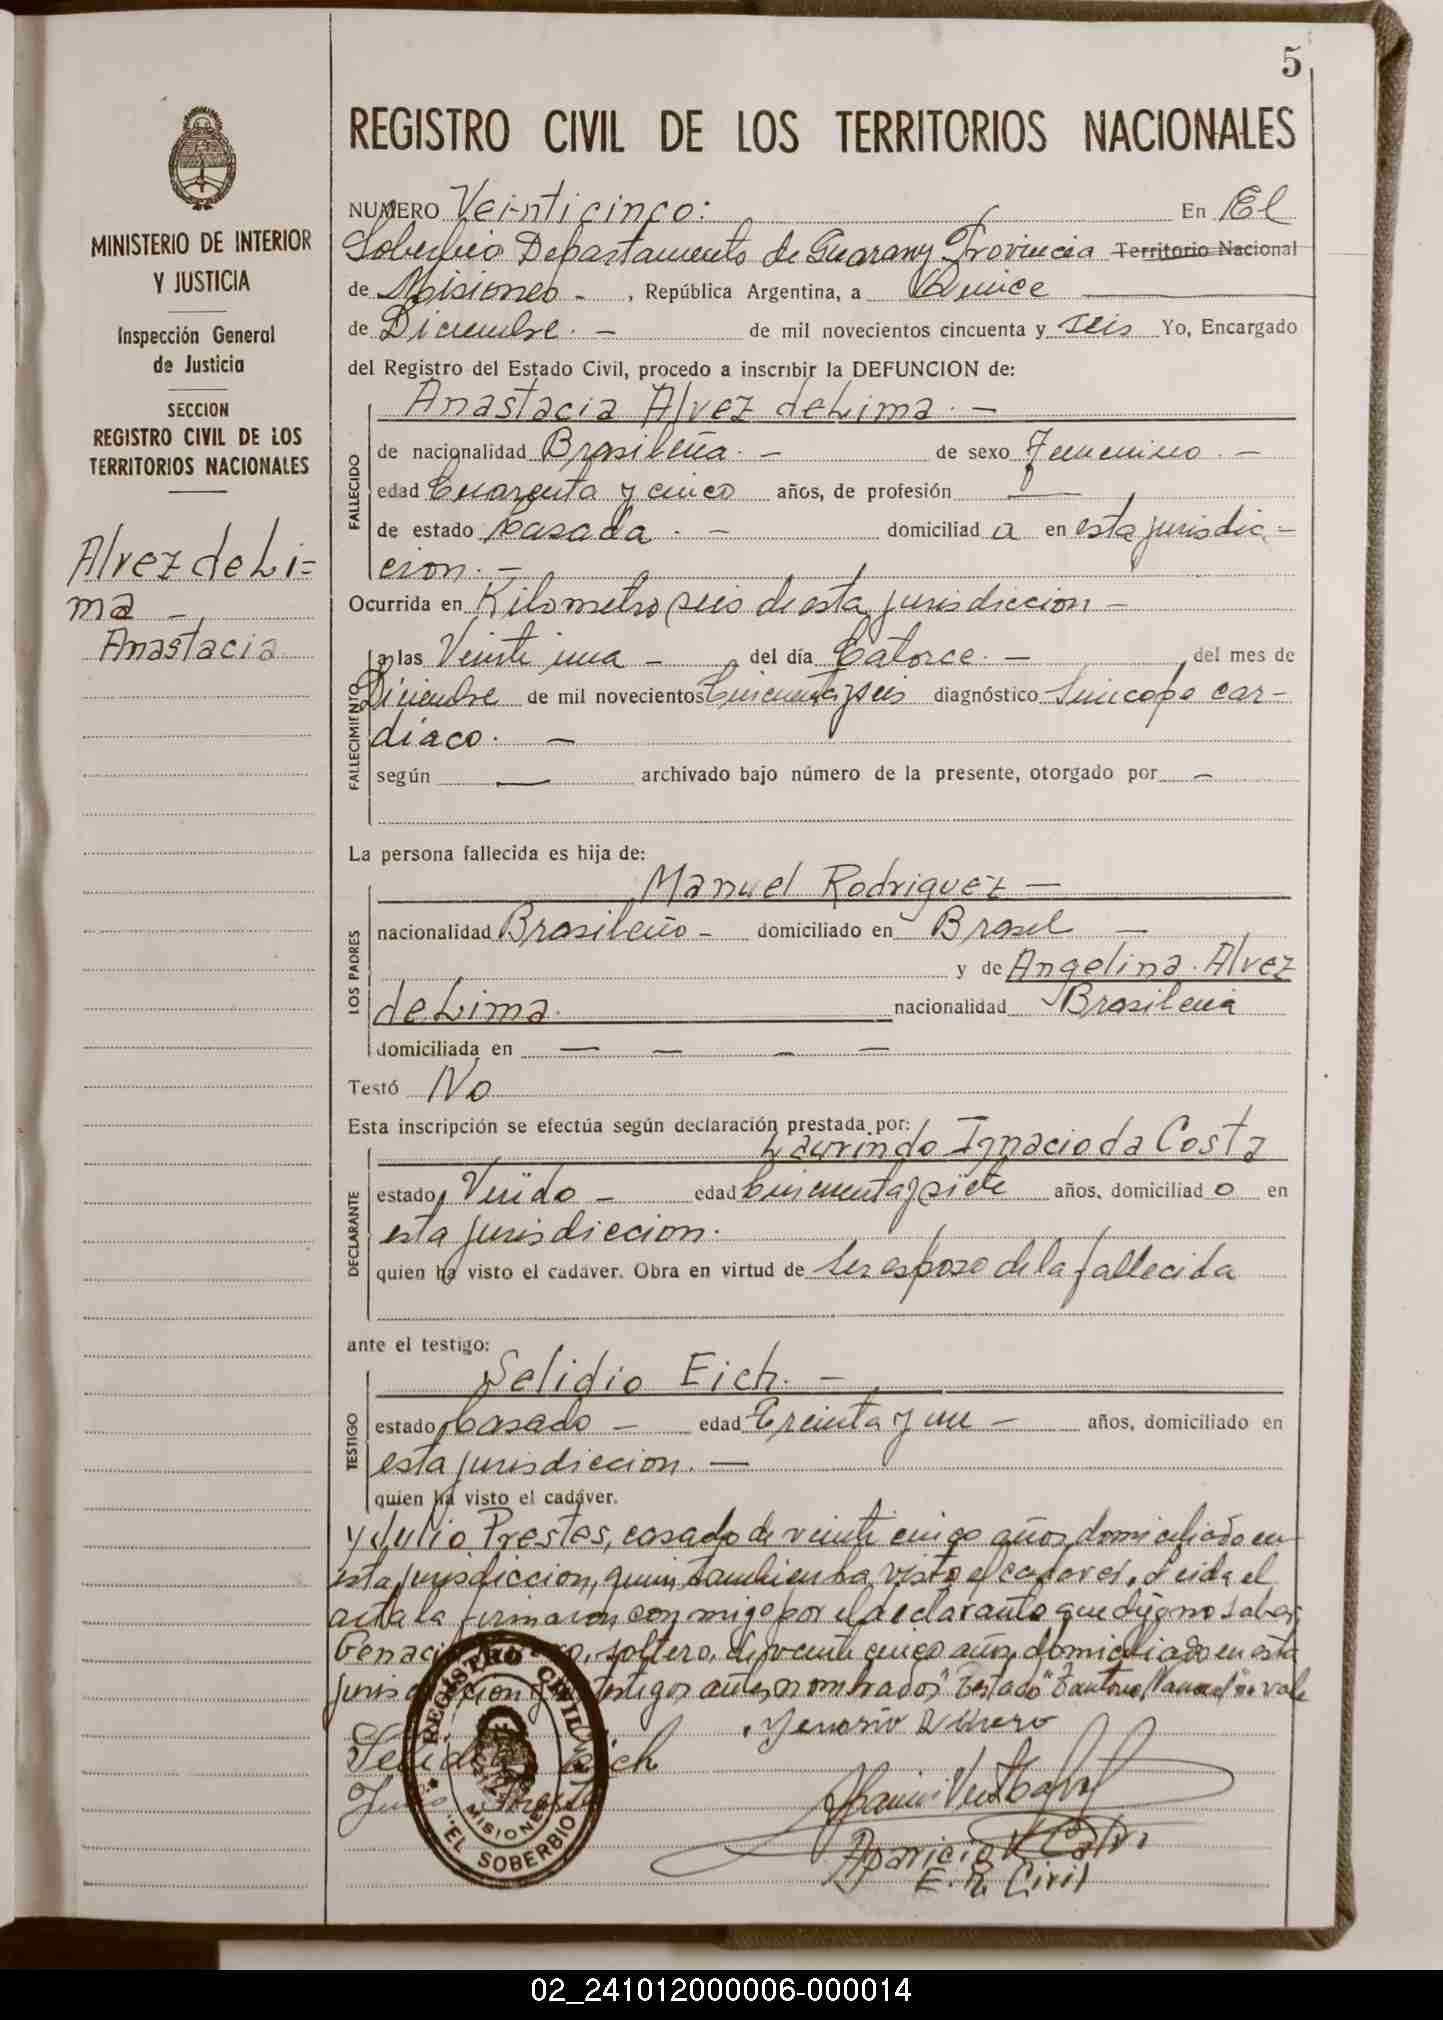 5
REGISTRO CIVIL DE LOS TERRITORIOS NACIONALES
MINISTERIO DE INTERIOR
Y JUSTICIA
Inspección General
de Justicia
SECCION
REGISTRO CIVIL DE LOS
TERRITORIOS NACIONALES
Alvez de Li=
ma -
Anastacia
NUMERO Veinticinco: En El
Soberbio Departamento de Guarany Provincia Territorio Nacional
de Misiones - , República Argentina, a Quince
de Diciembre. - de mil novecientos cincuenta y seis Yo, Encargado
del Registro del Estado Civil, procedo a inscribir la DEFUNCION de:
Anastacia Alvez de Lima. -
FALLECIDO
de nacionalidad Brasileña. - de sexo Femenino. -
edad Cuarenta y cinco años, de profesión —
de estado Casada. - domiciliad a en esta jurisdic=
cion. -
Ocurrida en Kilometro seis de esta jurisdiccion -
FALLECIMIENTO
a las Veinte una - del día Catorce. - del mes de
Diciembre de mil novecientos Cincuenta y seis diagnóstico Sincope car-
diaco. -
según — archivado bajo número de la presente, otorgado por -
La persona fallecida es hija de:
Manuel Rodriguez -
LOS PADRES
nacionalidad Brasileño - domiciliado en Brasil -
y de Angelina Alvez
de Lima. nacionalidad Brasileña
domiciliada en — — — —
Testó No
Esta inscripción se efectúa según declaración prestada por:
Laurindo Ignacio da Costa
DECLARANTE
estado Viudo - edad Cincuenta y siete años, domiciliad o en
esta jurisdiccion.
quien ha visto el cadáver. Obra en virtud de ser esposo de la fallecida
ante el testigo:
Selidio Eich. -
TESTIGO
estado Casado - edad Treinta y un - años, domiciliado en
esta jurisdiccion. -
quien ha visto el cadáver.
y Julio Prestes, casado de veinte cinco años, domiciliado en
esta jurisdiccion, quien tambien ha visto el cadaver. Leida el
acta la firmaron conmigo por el declarante que dijo no saber,
soltero, de veinte cinco años, domiciliado en esta
testigos antes nombrados" Testado " no vale
Selidio Eich
Aparicio V Calvo
E. R. Civil
REGISTRO CIVIL
MISIONES
"EL SOBERBIO"
02_241012000006-000014